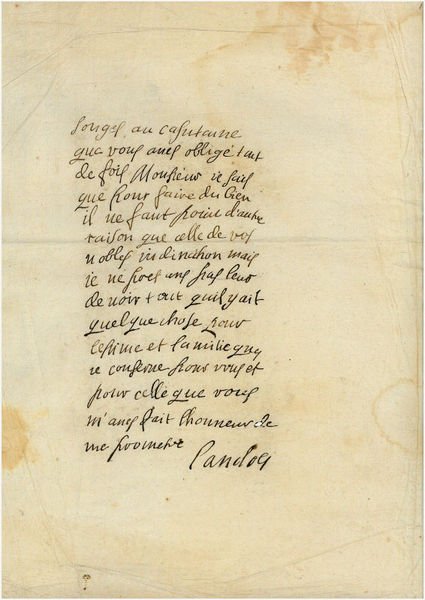 songes au capitaine
que vous aues obligé tant
de fois Monsieur ie sais
que pour faire du bien
il ne faut point d'autre
raison que celle de vos
nobles inclination mais
ie ne pas leur
de uoir tout quil y ait
quelque chose pour
lestime et lamitie que
ie conserue pour vous et
pour celle que vous
m'aues fait lhonneur de
me prometre